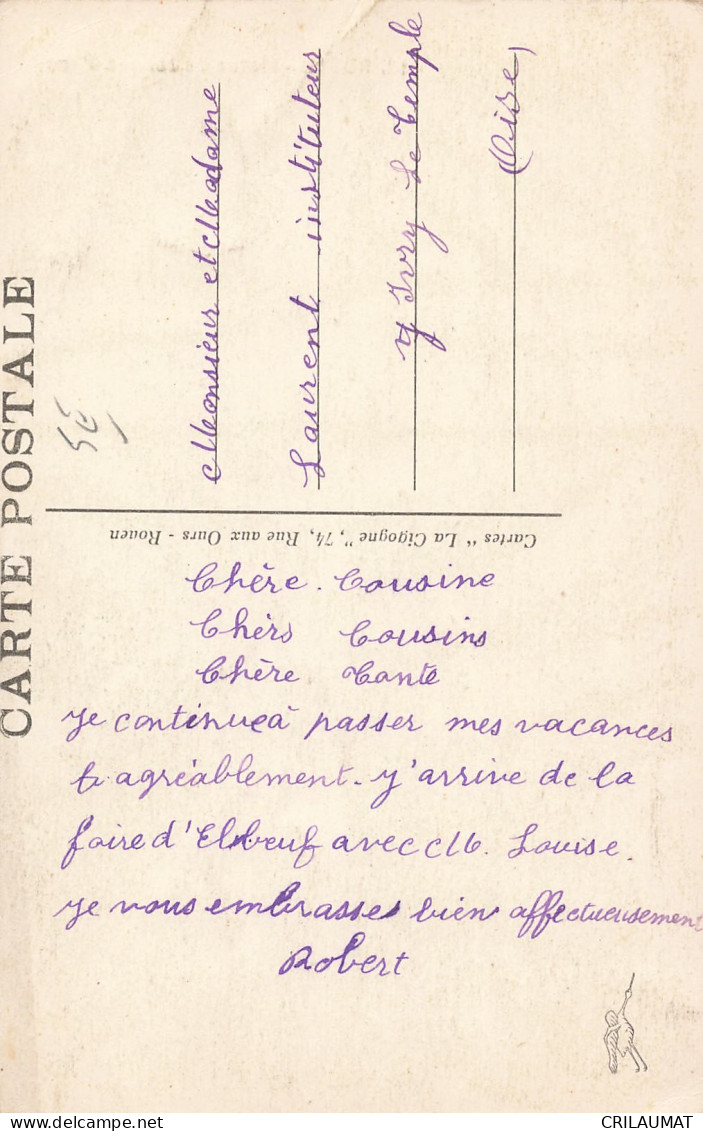 CARTE POSTALE
Monsieur et Madame
Laurent instituteur
Ivry le Temple
Oise
Cartes "La Cigogne", 74, Rue aux Ours - Rouen
Chère Cousine
Chèrs Cousins
Chère Tante
Je continue à passer mes vacances
agréablement. J'arrive de la
foire d'Elbeuf avec M. Louise.
Je vous embrasse bien affectueusement
Robert
CRILAUMAT